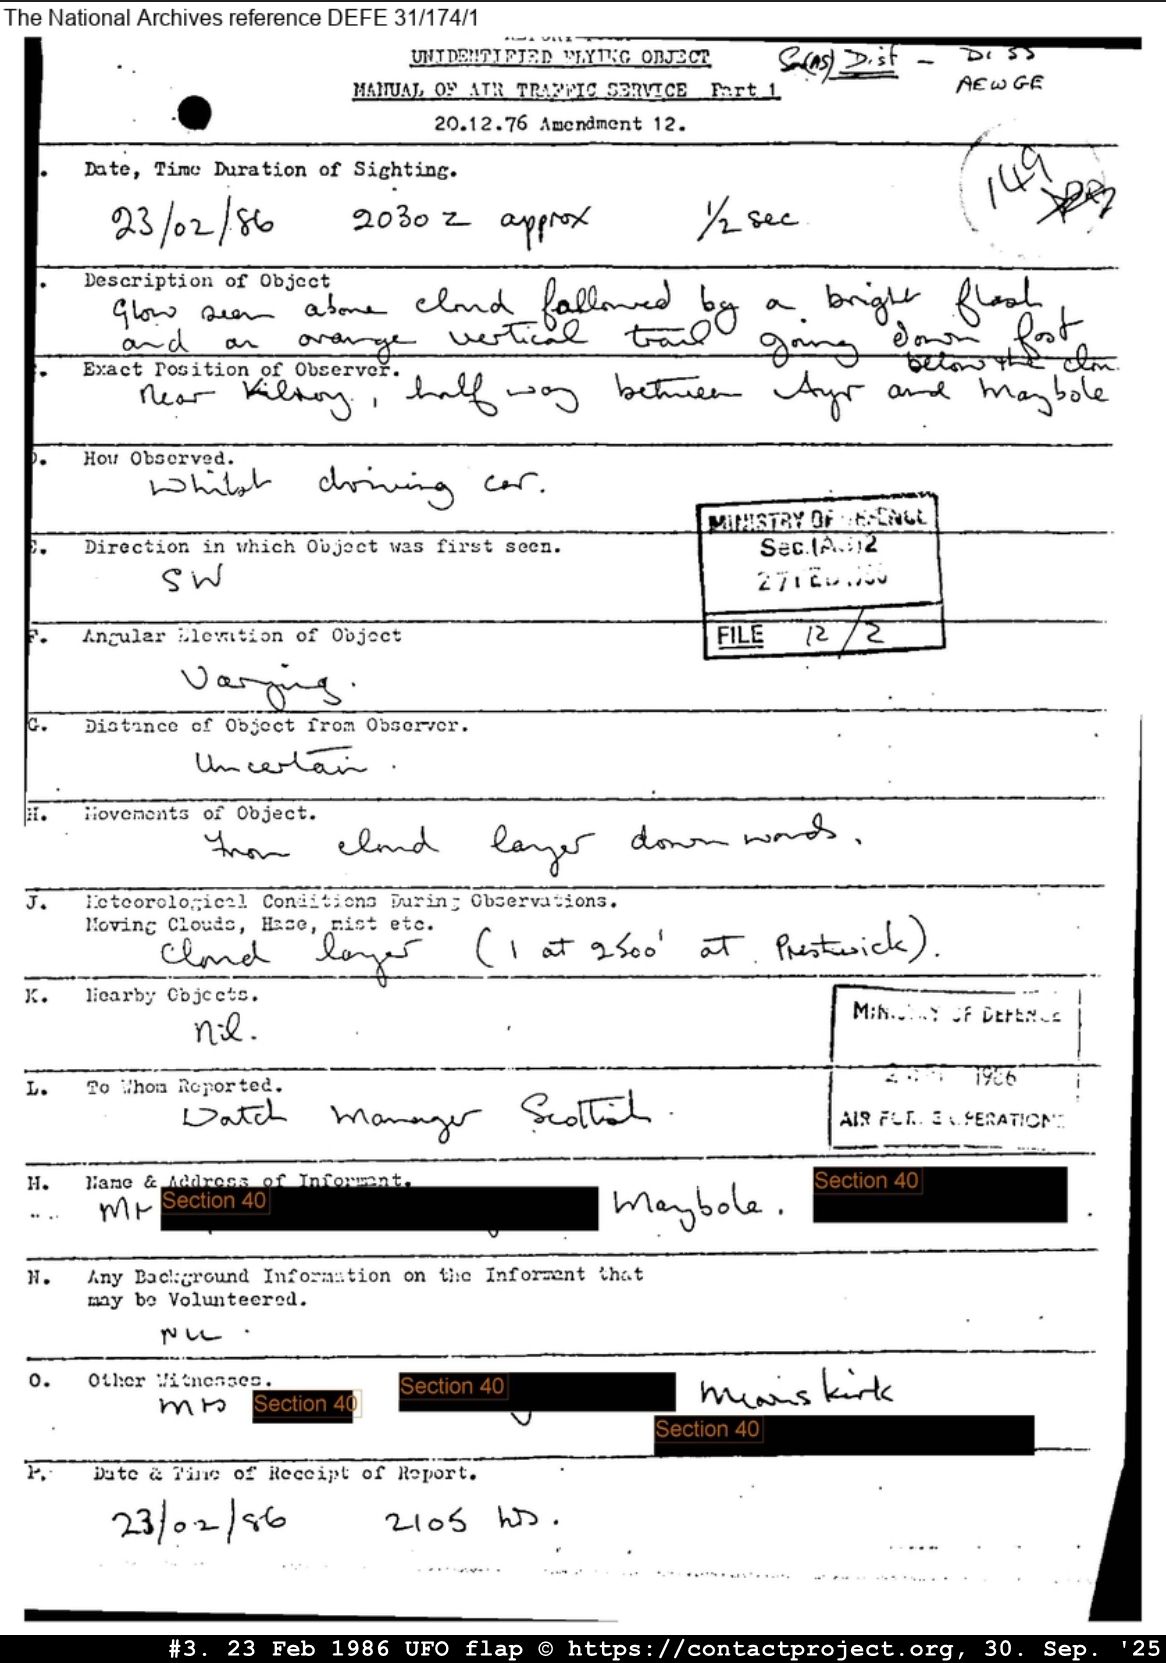 The National Archives reference DEFE 31/174/1
UNIDENTIFIED FLYING OBJECT
Sec(AS) Dist - DI 55
AEW GE
MANUAL OF AIR TRAFFIC SERVICE Part 1
20.12.76 Amendment 12.
Date, Time Duration of Sighting.
149
23/02/86 2030 Z approx 1/2 sec
Description of Object
Glow seen above cloud followed by a bright flash
and an orange vertical trail going down fast
below the clou
Exact Position of Observer.
Near , half way between Ayr and Maybole
D. How Observed.
Whilst driving car.
MINISTRY OF DEFENCE
E. Direction in which Object was first seen.
SW
FILE 12/2
F. Angular Elevation of Object
Varying.
G. Distance of Object from Observer.
Uncertain.
H. Movements of Object.
From cloud layer downwards.
J. Meteorological Conditions During Observations.
Moving Clouds, Haze, mist etc.
Cloud layer (1 at 2500' at Prestwick).
K. Nearby Objects.
Nil.
MINISTRY OF DEFENCE
1986
AIR FORCE OPERATIONS
L. To Whom Reported.
Watch Manager Scottish.
M. Name & Address of Informant.
Mr Section 40 Maybole. Section 40
N. Any Background Information on the Informant that
may be Volunteered.
NIL.
O. Other Witnesses.
Mrs Section 40 Section 40 Meinskirk
Section 40
P. Date & Time of Receipt of Report.
23/02/86 2105 hrs.
#3. 23 Feb 1986 UFO flap © https://contactproject.org, 30. Sep. '25